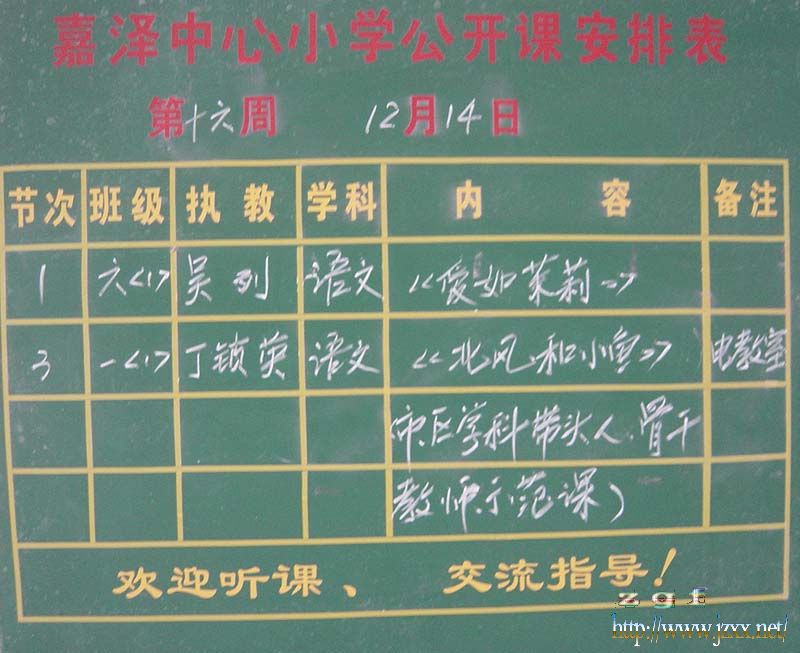 嘉泽中心小学公开课安排表
第十六周 12月14日
节次 班级 执教 学科 内容 备注
1 六<1> 吴列 语文 《爱如茉莉》
3 一<1> 丁锁英 语文 《北风和小鱼》 电教室
市、区学科带头人、骨干
教师示范课)
欢迎听课、 交流指导!
zgf
http://www.jzxx.net/